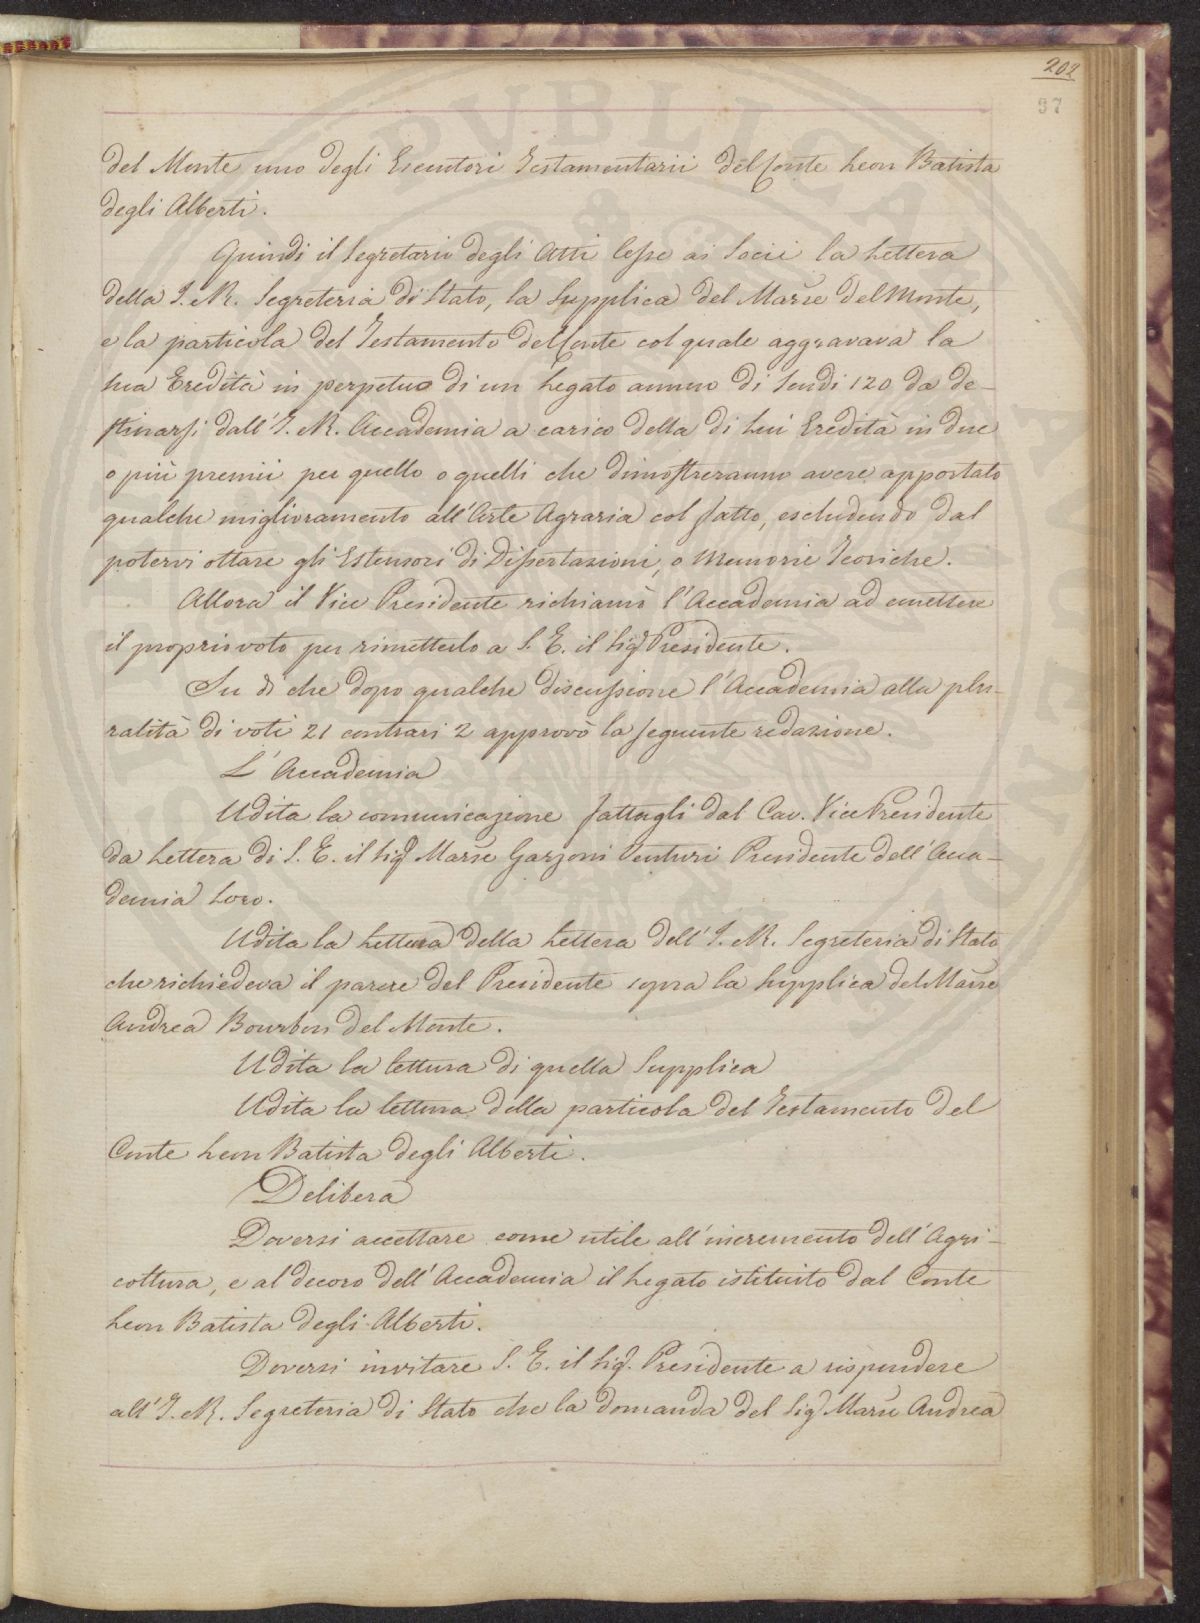 202
97
del Monte uno degli Esecutori Testamentarii del Conte Leon Batista
degli Alberti.
Quindi il Segretario degli Atti lesse ai Socii la Lettera
della I. e R. Segreteria di Stato, la Supplica del Marse Del Monte,
e la particola del Testamento del Conte col quale aggravava la
sua Eredità in perpetuo di un Legato annuo di Scudi 120 da de-
stinarsi dall' I. e R. Accademia a carico della di Lui Eredità in due
o più premii per quello o quelli che dimostreranno avere apportato
qualche miglioramento all'Arte Agraria col fatto, escludendo dal
potervi ottare gli Estensori di Dissertazioni, o Memorie Teoriche.
Allora il Vice Presidente richiamò l'Accademia ad emettere
il proprio voto per rimetterlo a S. E. il Sigr Presidente.
Su di che dopo qualche discussione l'Accademia alla plu-
ralità di voti 21 contrari 2 approvò la seguente redazione.
L'Accademia
Udita la comunicazione fattagli dal Cav. Vice Presidente
da Lettera di S. E. il Sigr Marse Garzoni Venturi Presidente dell'Acca-
demia Loro.
Udita la Lettura della Lettera dell' I. e R. Segreteria di Stato
che richiedeva il parere del Presidente sopra la Supplica del Marse
Andrea Bourbon del Monte.
Udita la lettura di quella Supplica
Udita la lettura della particola del Testamento del
Conte Leon Batista degli Alberti.
Delibera
Doversi accettare come utile all'incremento dell'Agri-
coltura, e al decoro dell'Accademia il Legato istituito dal Conte
Leon Batista degli Alberti.
Doversi invitare S. E. il Sigr. Presidente a rispondere
all' I. e R. Segreteria di Stato che la domanda del Sigr Marse Andrea